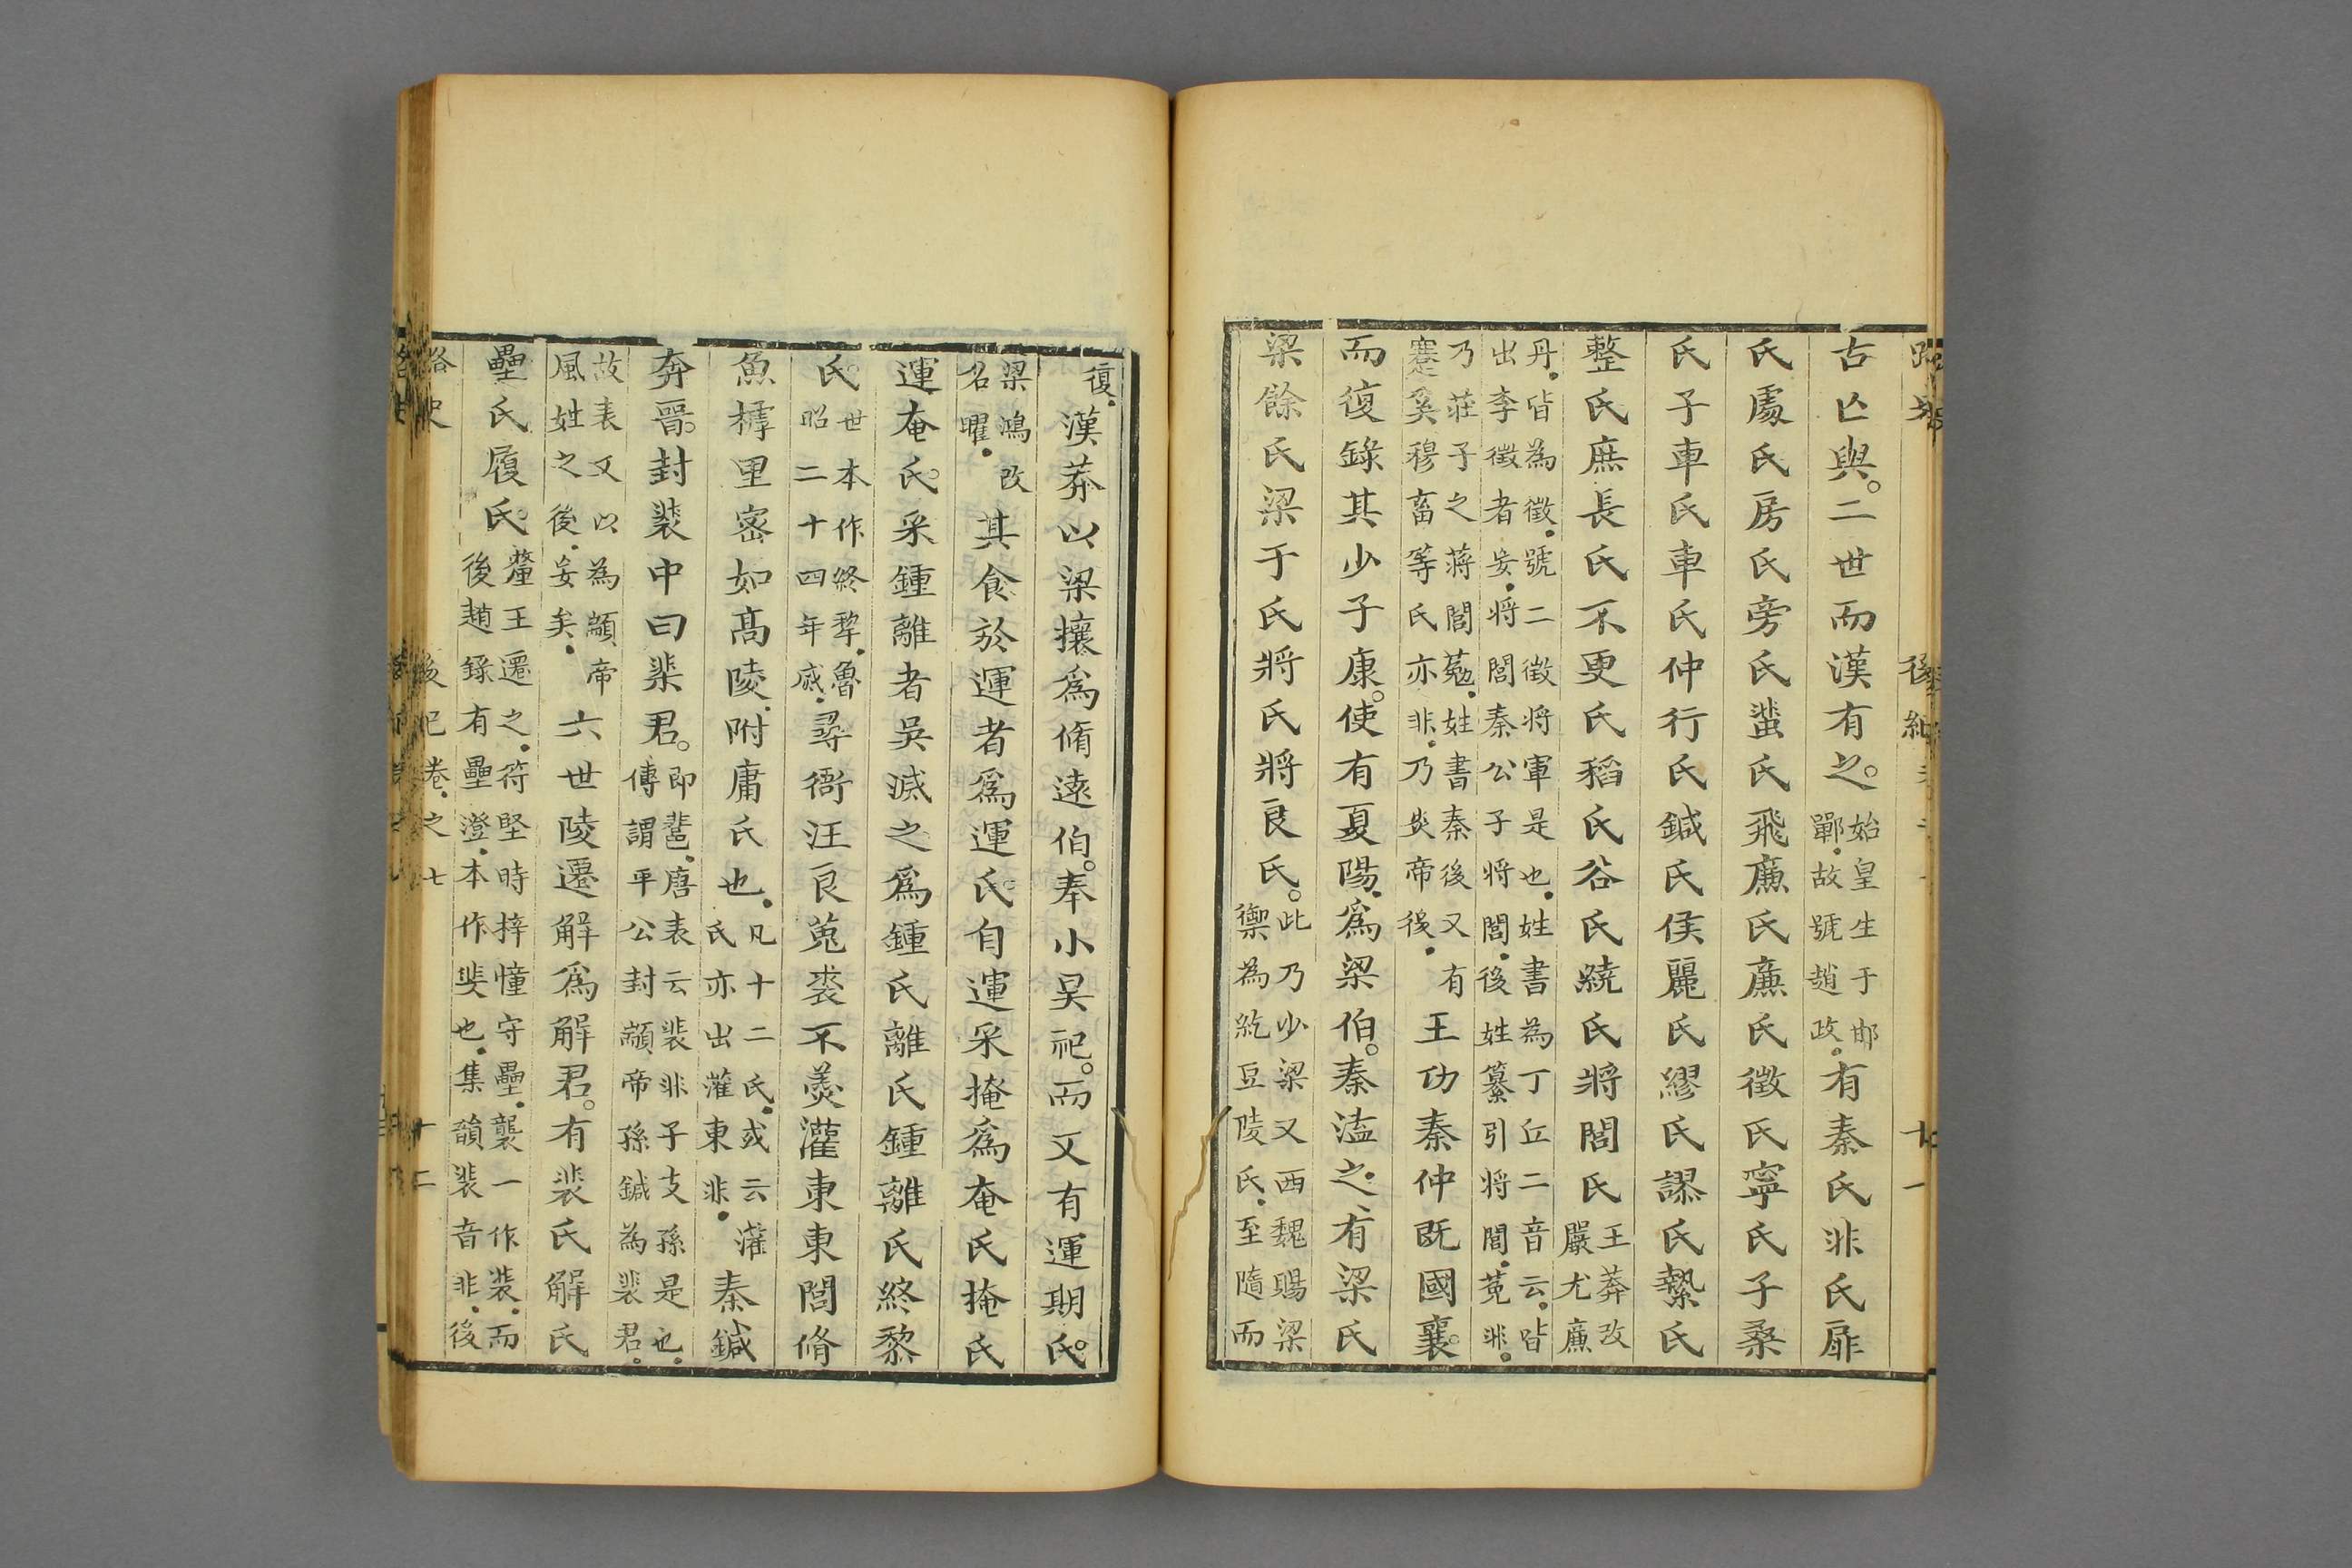 古亾與。二世而漢有之。始皇生于邯鄲。故號趙政。有秦氏非氏扉
氏處氏房氏旁氏蜚氏飛廉氏廉氏徵氏寧氏子桑
氏子車氏車氏仲行氏鍼氏侯麗氏繆氏謬氏縶氏
整氏庶長氏不更氏稻氏谷氏繞氏將閭氏王莽改嚴尤廉
丹。皆為徵。號二徵将軍是也。姓書為丁丘二音云。皆出李徵者妄。将閭秦公子将閭。後姓纂引将閭菟。非。
乃莊子之蒋閭菟。姓書秦後又有蹇奚穆畜等氏亦非。乃炎帝後。王功秦仲旣國襄。
而復錄其少子康。使有夏陽。爲梁伯。秦溘之。有梁氏
梁餘氏梁于氏將氏將良氏。此乃少梁又西魏賜梁禦為紇豆陵氏。至隨而
復。漢莽以梁攘爲脩遠伯。奉小吴祀。而又有運期氏。
梁鴻改名曜。其食於運者爲運氏。自運采掩爲奄氏掩氏
運奄氏。采鍾離者吳滅之爲鍾氏離氏鍾離氏終黎
氏。世本作終犂。魯昭二十四年滅。尋衙汪良菟裘不羹灌東東閭脩
魚樗里密如髙陵。附庸氏也。凡十二氏。或云灌氏亦出灌東非。秦鍼
奔晉。封裴中曰棐君。即䓲。唐表云裴非子支孫是也。傳謂平公封顓帝孫鍼為裴君。
故表又以為顓帝風姓之後。妄矣。六世陵遷解爲解君。有裴氏解氏
壘氏履氏。釐王遷之。苻堅時梓憧守壘。襲一作裴。而後趙錄有壘澄。本作斐也。集韻裴音非。後
路史 後紀卷之七 十二